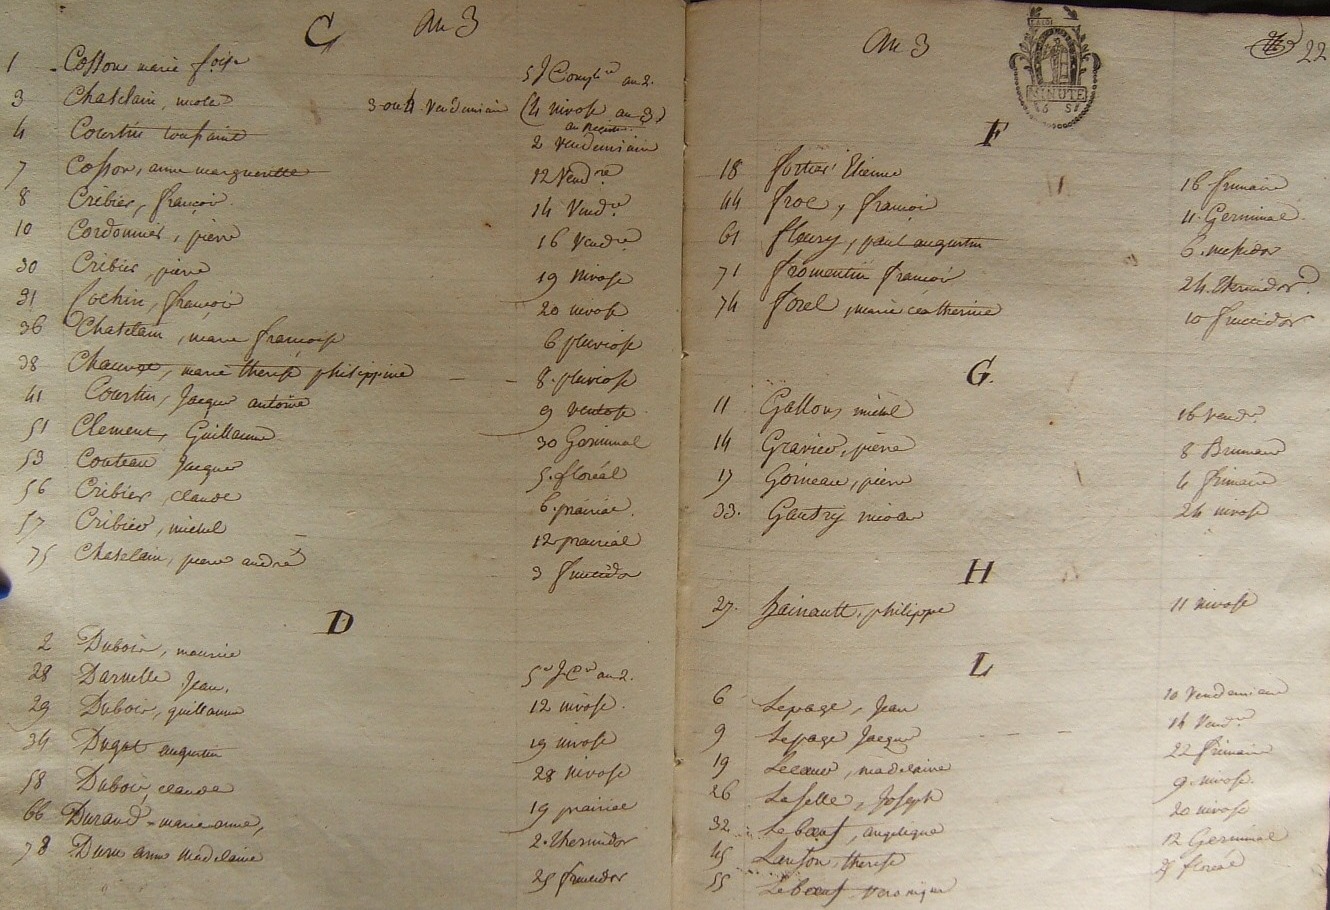 C An 3
1 Cosson marie foise 5 J Complre an 2.
3 Chatelain, nicole 3 ou 4 vendemiaire (4 nivose an 3)
4 Courtin toussaint 2 vendemiaire
7 Cosson, anne marguerite 12 Vendre
8 Cribier, françois 14 Vendre
10 Cordonnier, pierre 16 Vendre
30 Cribier, pierre 19 Nivose
31 Cochin, françois 20 nivose
36 Chatelain, marie françoise 6 pluviose
38 Chauvot, marie therese philippine 8. pluviose
41 Courtin, Jacque antoine 9 ventose
51 Clement, Guillaume 30 Germinal
53 Couteau Jacque 5. floréal
56 Cribier, claude 6. prairial.
57 Cribier, michel 12 prairial
75 Chatelain, pierre andré 3 fructidor
D
2 Dubois, maurice 5e J. Cre an 2.
28 Darnelle Jean. 12 nivose.
29 Dubois, guillaume 19 nivose
34 Dugat augustin 28 nivose
58 Dubois, claude 19 prairial
66 Durand marie anne, 2. thermidor
78 Duru anne Madelaine 25 fructidor
An 3
MINUTE
22
F
18 fortier Etienne 16 frimaire
44 froc, françois 11 Germinal.
61 fleury, paul augustin 6. messidor
71 fromentin françois 24. thermidor.
74 forel, marie catherine 10 fructidor
G.
11 Gallou, michel 16 vendre
14 Gravier, pierre 8 Brumaire
17 Goineau, pierre 4 frimaire
33. Gautry nicolas 24 nivose
H
27. hainault, philippe 11 nivose
L
6 Lepage, Jean 10 Vendemiaire
9 Lepage Jacque 14 Vendre
19 madelaine 22 frimaire
26 Laselle, Joseph 9. nivose.
32 Leboeuf, angelique 20 nivose
45 Lanson, therese 12 Germinal
55 Leboeuf veronique 25 floréal